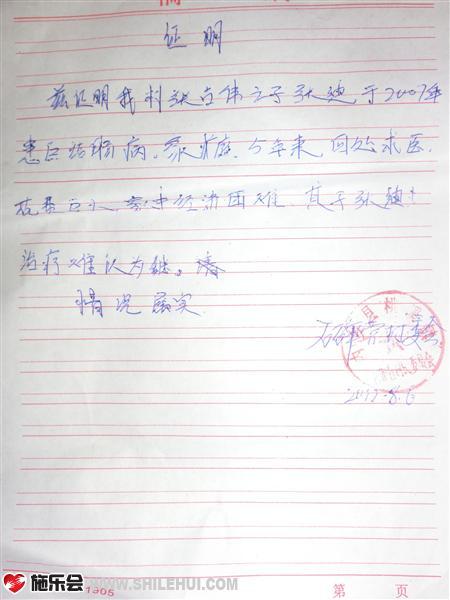 证明
兹证明我村张占伟之子张迪于2007年
患巨结肠病。家庭 今年来 四处求医.
花费巨大，家中经济困难，其子张迪
治疗难以为继。请
情况属实
村委会
施乐会
1905
WWW.SHILEHUI.COM
第 页